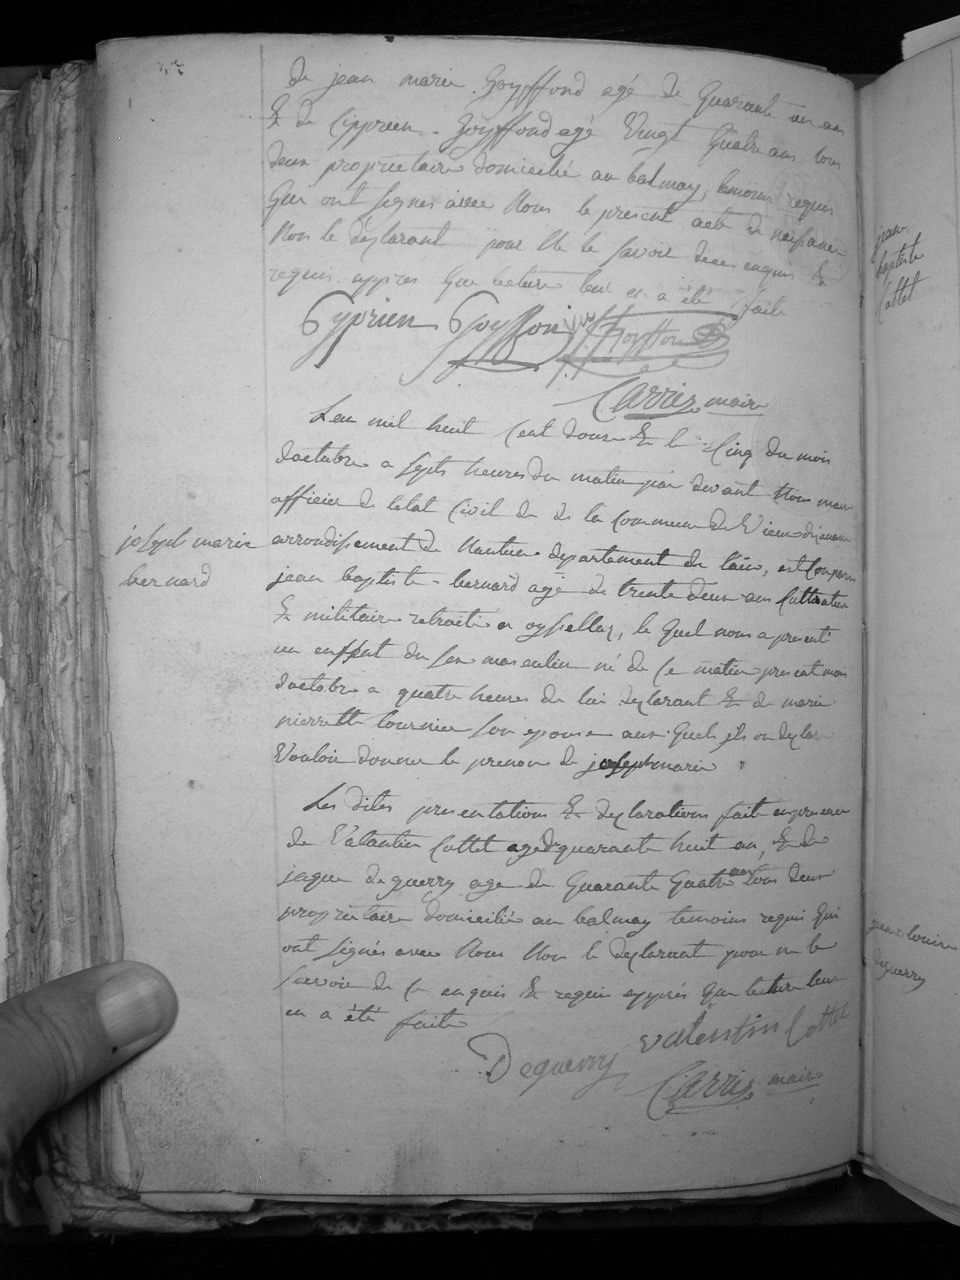 de jean marie Goyffond agé de quarante un an
& de Ciprien Goyffond agé vingt quatre ans tous
deux proprietaire domicilié au balmay, temoins requis
qui ont signés avec nous le present acte de naissance
non le déclarant pour ne le savoir de ce enquis &
requis appres que lecture leur en a été faite
Cyprien Goyffon Goyffon
Carrier maire
L'en mil huit cent douze & le cinq du mois
doctobre a septs heures du matin par devant nous maire
officier de letat civil de de la commune de Vieu dizenave
arrondissement de Nantua departement de lain, est comparu
joseph marie
bernard
jean baptiste bernard agé de trente deux ans cultivateur
& militaire retraité a oyssellaz, le quel nous a presenté
un enffent du sex masculin né de ce matin present mois
doctobre a quatre heures de lui declarant & de marie
pierrette tournier son epouse aux quels ils on declaré
Vouloir donner le prenon de joseph marie
Les dites presentations & declarations fait en presence
de Valantin Cottet agé de quarante huit an, & de
jaque deguerry age de quarante quatre ans tous deux
proprietaire domicilié au balmay temoins requis qui
ont signés avec nous non le declarant pour ne le
savoir de ce enquis & requis appres que lecture leur
en a été faite
Deguerry valentin Cottet
Carrier maire
jean
baptiste
Cottet
jean louise
deguerry